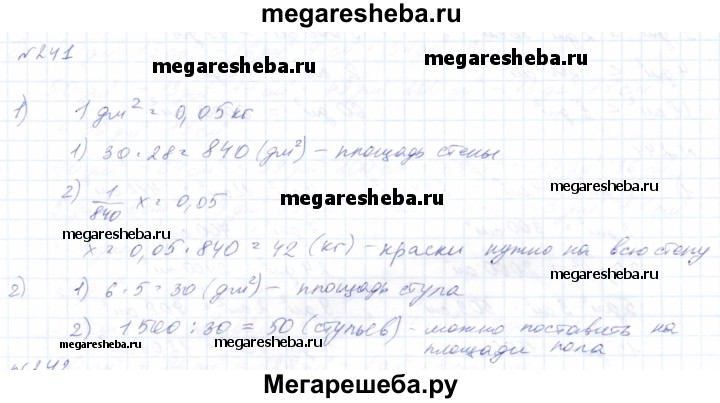 megaresheba.ru
№241
megaresheba.ru megaresheba.ru
1) 1 дм² = 0,05 кг
1) 30 · 28 = 840 (дм²) – площадь стены
2) 1/840 x = 0,05
megaresheba.ru megaresheba.ru
megaresheba.ru
x = 0,05 · 840 = 42 (кг) – краски нужно на всю стену
2) 1) 6 · 5 = 30 (дм²) – площадь стула
2) 1500 : 30 = 50 (стульев) – можно поставить на
megaresheba.ru megaresheba.ru megaresheba.ru
площади пола
№242
Мегарешеба.ру